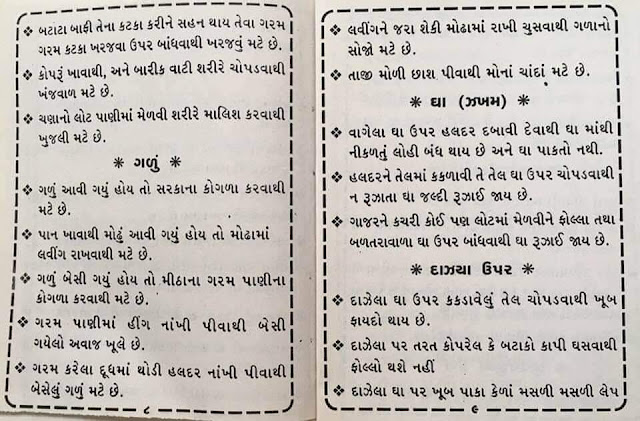 ❖ બટાટા બાફી તેના કટકા કરીને સહન થાય તેવા ગરમ
ગરમ કટકા ખરજવા ઉપર બાંધવાથી ખરજવું મટે છે.
❖ કોપરૂં ખાવાથી, અને બારીક વાટી શરીરે ચોપડવાથી
ખંજવાળ મટે છે.
❖ ચણાનો લોટ પાણીમાં મેળવી શરીરે માલિશ કરવાથી
ખુજલી મટે છે.
✷ ગળું ✷
❖ ગળું આવી ગયું હોય તો સરકાના કોગળા કરવાથી
મટે છે.
❖ પાન ખાવાથી મોઢું આવી ગયું હોય તો મોઢામાં
લવીંગ રાખવાથી મટે છે.
❖ ગળું બેસી ગયું હોય તો મીઠાના ગરમ પાણીના
કોગળા કરવાથી મટે છે.
❖ ગરમ પાણીમાં હીંગ નાંખી પીવાથી બેસી
ગયેલો અવાજ ખૂલે છે.
❖ ગરમ કરેલા દૂધમાં થોડી હલદર નાંખી પીવાથી
બેસેલું ગળું મટે છે.
૮
❖ લવીંગને જરા શેકી મોઢામાં રાખી ચુસવાથી ગળાનો
સોજો મટે છે.
❖ તાજી મોળી છાશ પીવાથી મોંનાં ચાંદાં મટે છે.
✷ ઘા (ઝખમ) ✷
❖ વાગેલા ઘા ઉપર હલદર દબાવી દેવાથી ઘા માંથી
નીકળતું લોહી બંધ થાય છે અને ઘા પાકતો નથી.
❖ હલદરને તેલમાં કકળાવી તે તેલ ઘા ઉપર ચોપડવાથી
ન રૂઝાતા ઘા જલ્દી રૂઝાઈ જાય છે.
❖ ગાજરને કચરી કોઈ પણ લોટમાં મેળવીને ફોલ્લા તથા
બળતરાવાળા ઘા ઉપર બાંધવાથી ઘા રૂઝાઈ જાય છે.
✷ દાઝયા ઉપર ✷
❖ દાઝેલા ઘા ઉપર કકડાવેલું તેલ ચોપડવાથી ખૂબ
ફાયદો થાય છે.
❖ દાઝેલા પર તરત કોપરેલ કે બટાકો કાપી ઘસવાથી
ફોલ્લો થશે નહીં
❖ દાઝેલા ઘા પર ખૂબ પાકા કેળાં મસળી મસળી લેપ
૯